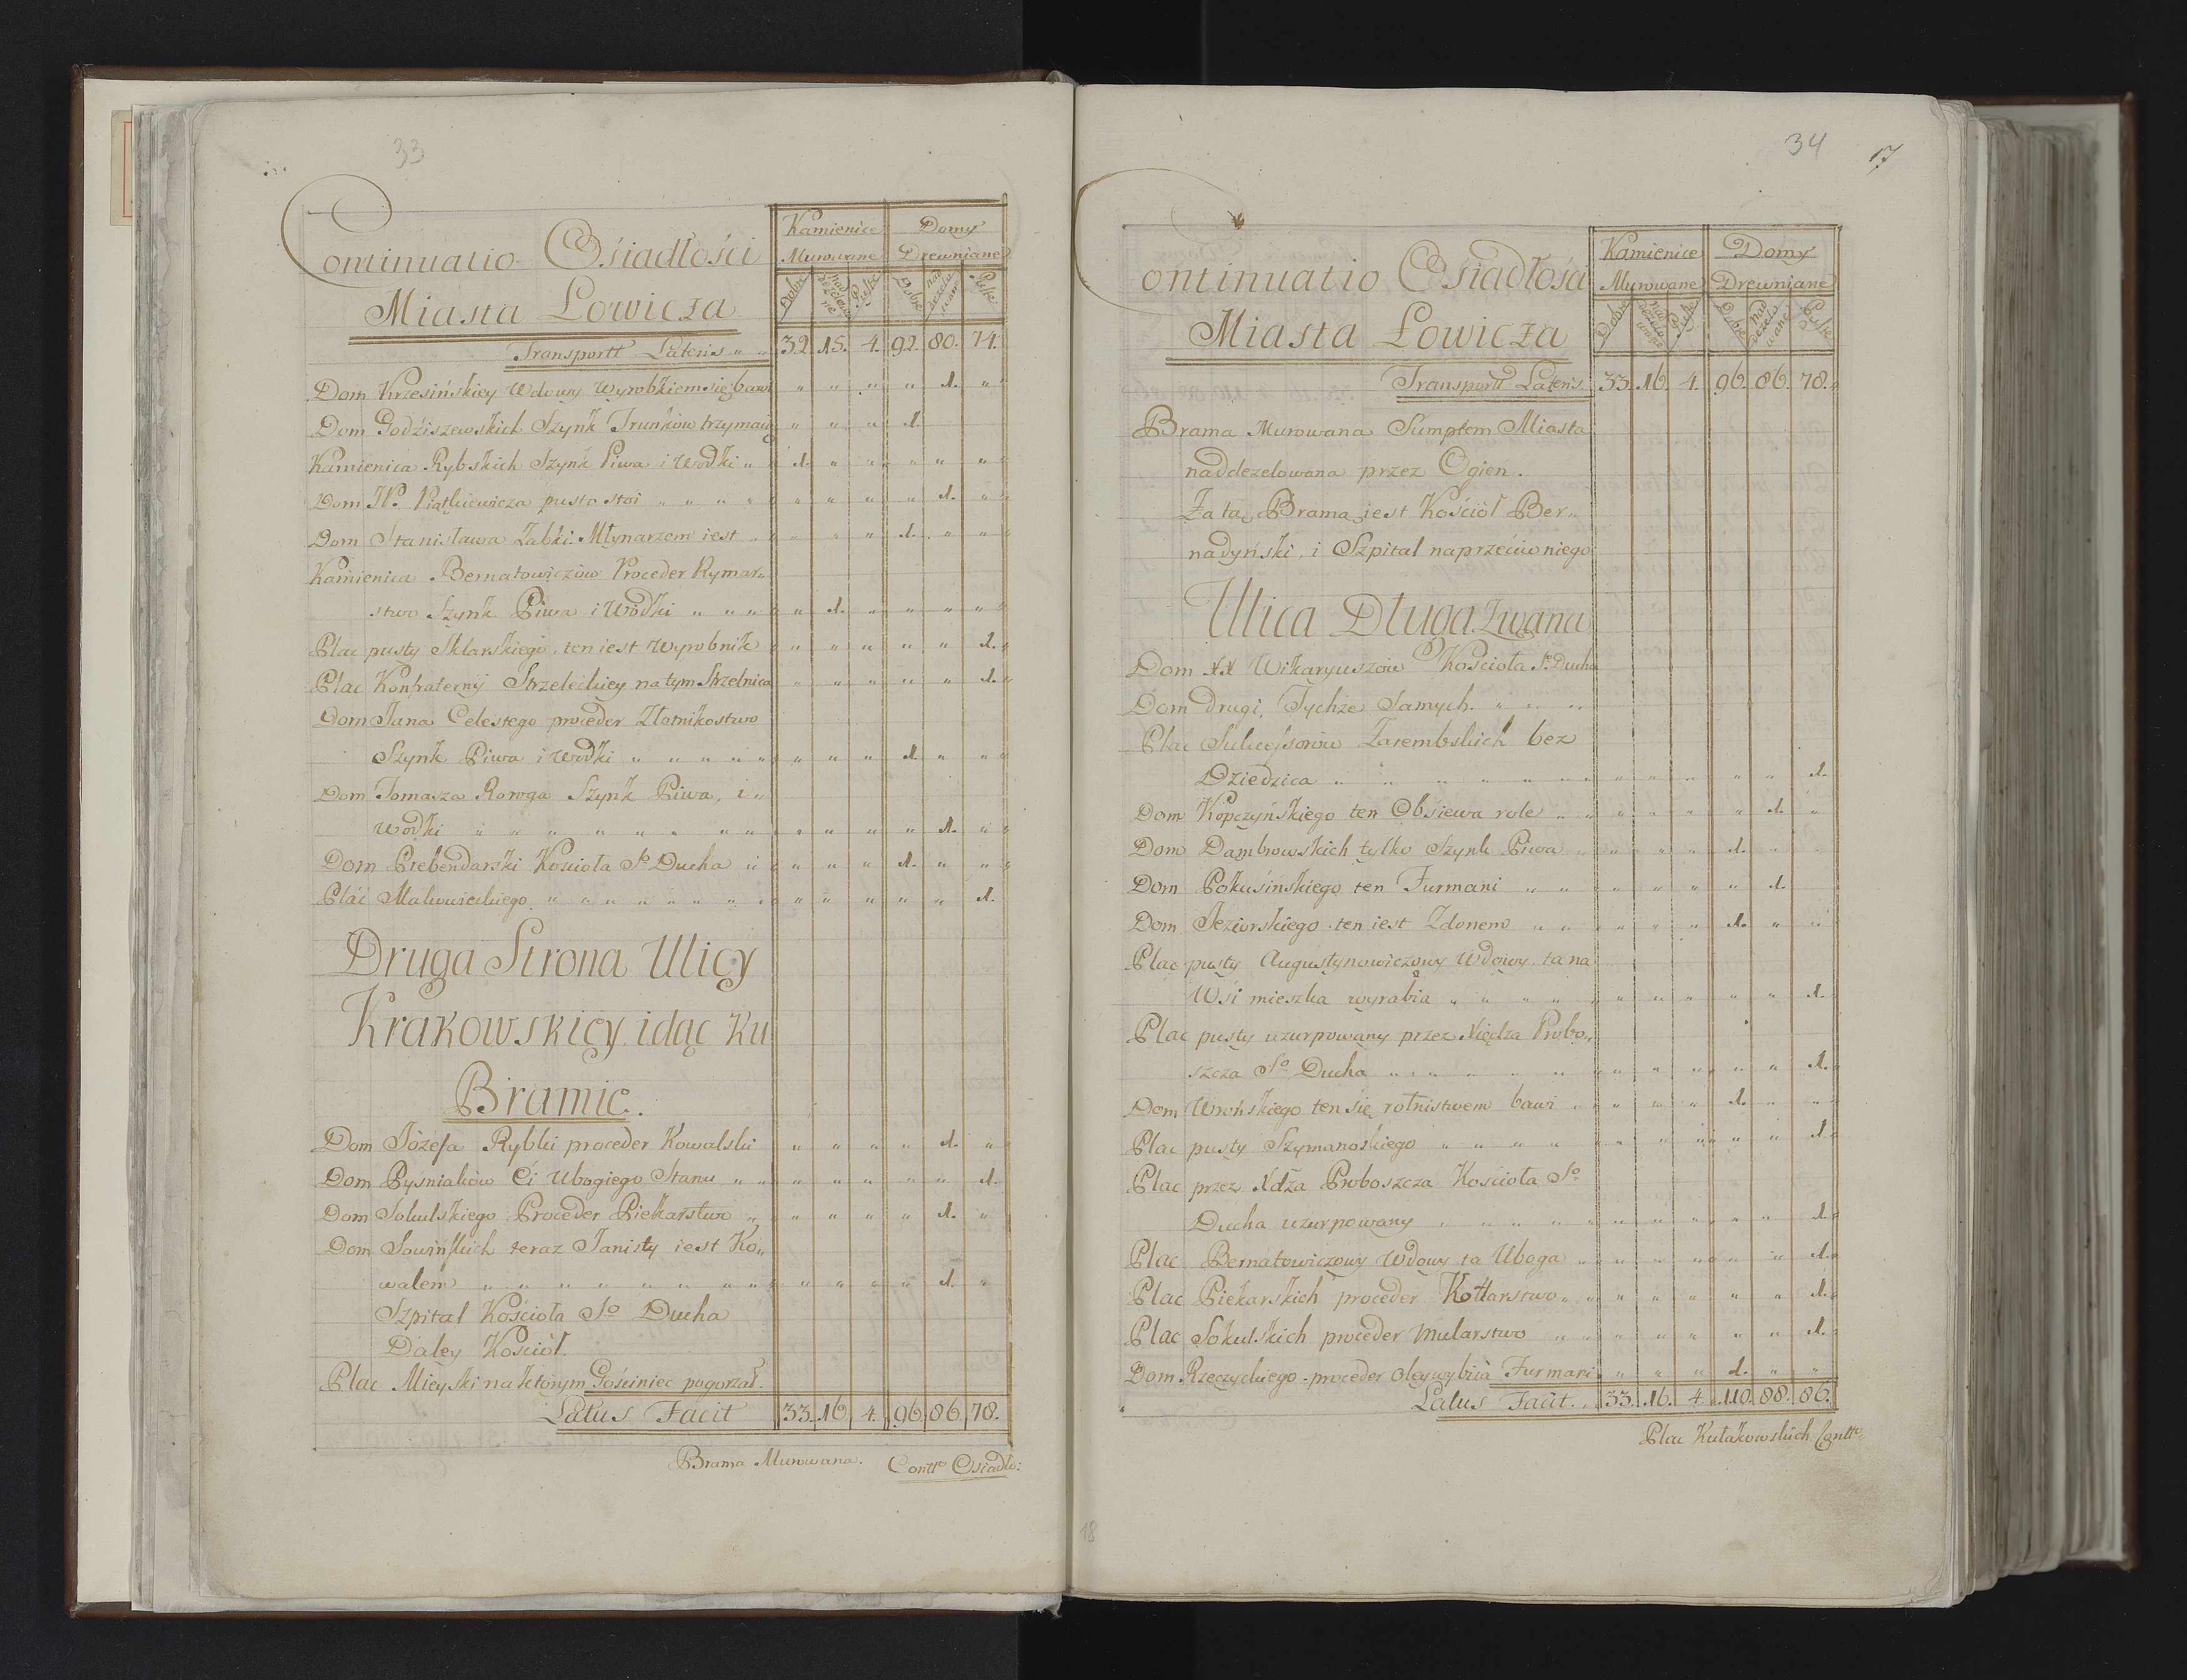 33
Continuatio Osiadłości
Miasta Łowicza
Kamienice Domy
Murowane Drewniane
Dobre nad dezelowane Puste Dobre nad dezelowane Puste
Transportt Lateris " " 32. 15. 4. 92. 80. 74.
Dom Krzesińskiey Wdowy Wyrobkiem się bawi " " " " 1. "
Dom Godziszewskich Szynk Trunków trzymaią " " " 1.
Kamienica Rybskich Szynk Piwa i Wodki " " 1. " " " " "
Dom JP. Piątkiewicza pusto stoi " " " " " " " " 1. "
Dom Stanisława Żabki Młynarzem iest " " " " 1. " "
Kamienica Bernatowiczów Proceder Rymar"
stwo Szynk Piwa i Wodki " " " " 1. " " " "
Plac pusty Sklarskiego, ten iest Wyrobnik " " " " " 1.
Plac Konfraternij Strzeleckiey na tym Strzelnica " " " " " 1.
Dom Jana Celestego proceder Złotnikostwo
Szynk Piwa i Wodki " " " " " " " " 1. " "
Dom Tomasza Rowga Szynk Piwa, i "
Wodki " " " " " " " " " " " " 1. "
Dom Prebendarski Kościoła So Ducha " " " " 1. " "
Plac Malowieckiego " " " " " " " " " " " " 1.
Druga Strona Ulicy
Krakowskiey, idąc Ku
Bramie.
Dom Józefa Rybki proceder Kowalski " " " " 1. "
Dom Pysniaków Ci Ubogiego Stanu " " " " " " " 1.
Dom Sokulskiego Proceder Piekarstwo " " " " " 1. "
Dom Sowińskich teraz Janisty iest Ko"
walem " " " " " " " " " " " " 1. "
Szpital Kościoła So Ducha
Daley Kościół.
Plac Mieyski na ktorym Gościniec pogorzał.
Latus Facit 33. 16. 4. 96. 86. 78.
Brama Murowana. Contto Osiadło:
34 17
Continuatio Osiadłości
Miasta Łowicza
Kamienice Domy
Murowane Drewniane
Dobre nad dezelowane Puste Dobre nad dezelowane Puste
Transportt Lateris 33. 16. 4. 96. 86. 78.
Brama Murowana Sumptem Miasta
naddezelowana przez Ogień.
Za tą Bramą iest Kościół Ber"
nadyński, i Szpital naprzeciw niego
Ulica Długa Zwana
Dom XX Wikaryuszów Kościoła So Ducha
Dom drugi, Tychże Samych. " " "
Plac Sukcessorów Zarembskich bez
Dziedzica " " " " " " " " " " " " 1.
Dom Kopczyńskiego ten Obsiewa role " " " " " " 1. "
Dom Dambrowskich tylko Szynk Piwa " " " " 1. " "
Dom Pokusińskiego ten Furmani " " " " " " 1.
Dom Jeziorskiego ten iest Zdonem " " " " " 1. " "
Plac pusty Augustynowiczowy Wdowy ta na
Wsi mieszka wyrabia " " " " " " " " " " 1.
Plac pusty uzurpowany przez Xiędza Probo"
szcza So Ducha " " " " " " " " " " " 1.
Dom Wrońskiego ten się rolnistwem bawi " " " " 1. " "
Plac pusty Szymanoskiego " " " " " " " " " 1.
Plac przez Xdza Proboszcza Kościoła So
Ducha uzurpowany " " " " " " " " " " 1.
Plac Bernatowiczowy Wdowy ta Uboga " " " " " " 1.
Plac Piekarskich proceder Kotlarstwo " " " " " " 1.
Plac Sokulskich proceder Mularstwo " " " " " " " 1.
Dom Rzeczyckiego proceder Oley wybiia Furmani " " " 1. " "
Latus Facit. 33. 16. 4. 110. 88. 86.
Plac Kułakowskich Contto
18